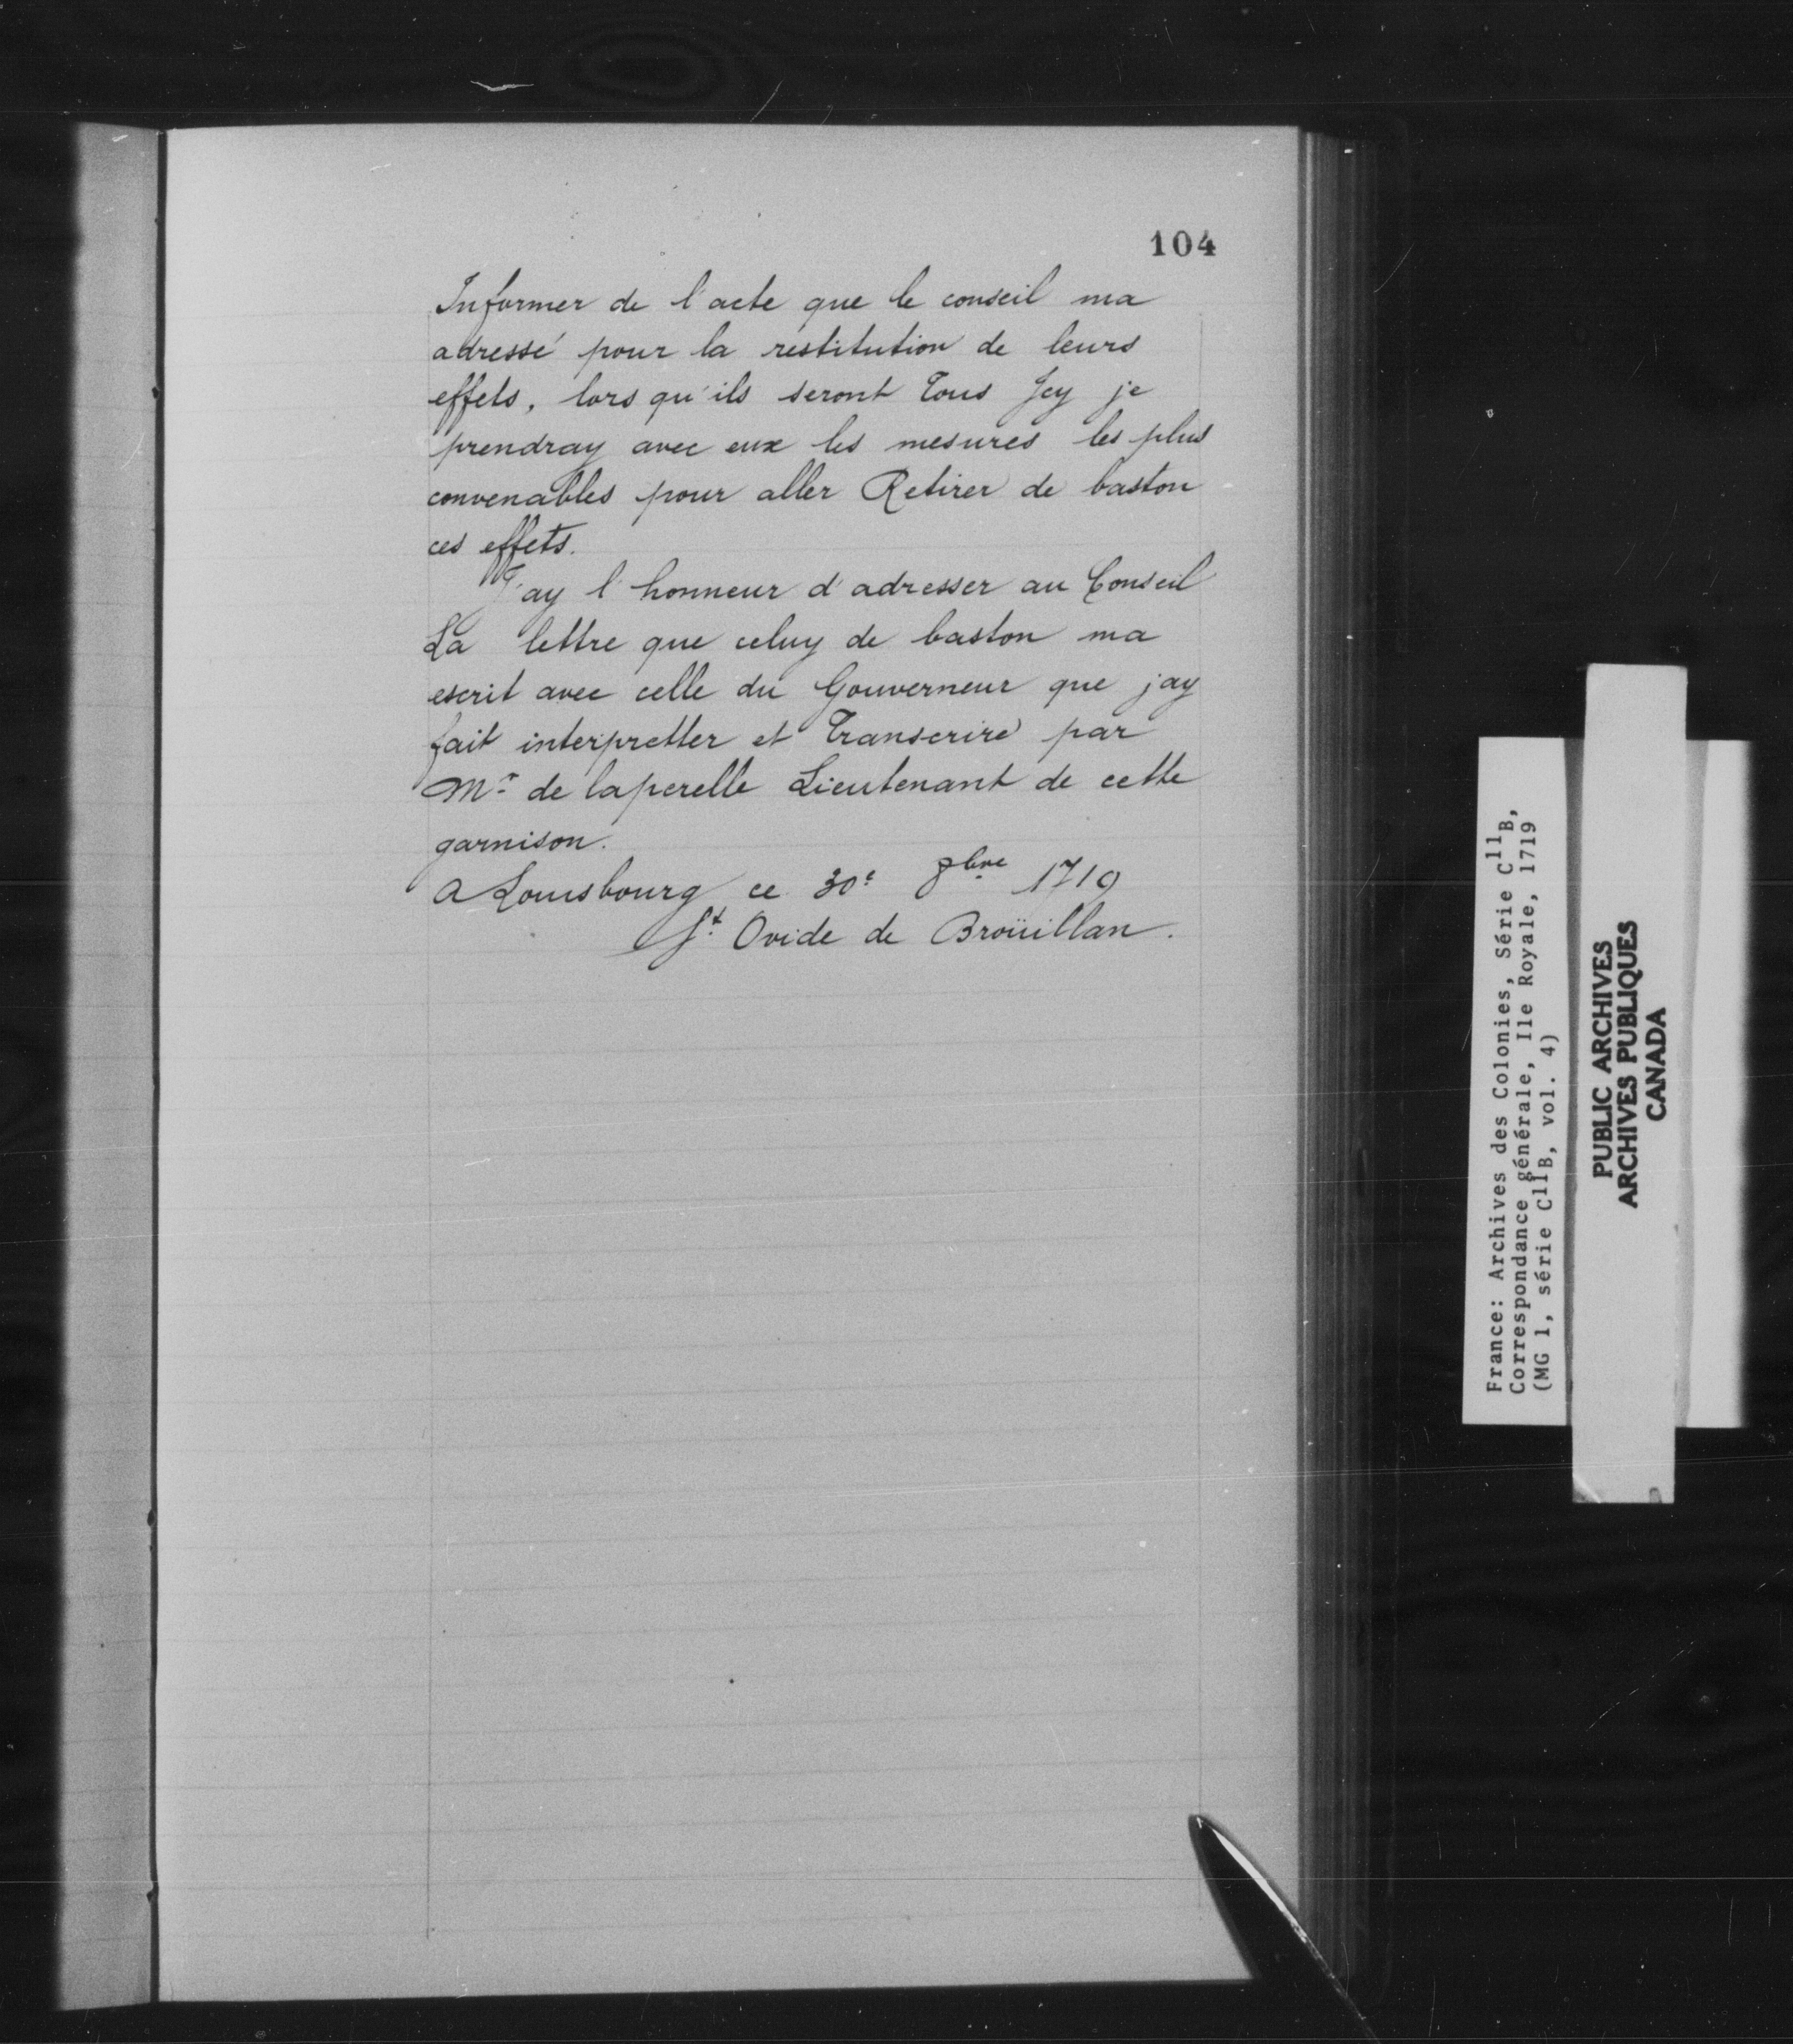 104
Informer de l'acte que le conseil ma
adressé pour la restitution de leurs
effets, lors qu'ils seront Tous Jcy je
prendray avec eux les mesures les plus
convenables pour aller Retirer de baston
ces effets.
J'ay l'honneur d'adresser au Conseil
La lettre que celuy de baston ma
escrit avec celle du Gouverneur que jay
fait interpretter et Transcrire par
Mr de laperelle Lieutenant de cette
garnison.
A Louisbourg ce 30e 8bre 1719
St Ovide de Broüillan.
France: Archives des Colonies, Série C11B,
Correspondance générale, Ile Royale, 1719
(MG 1, série C11B, vol. 4)
PUBLIC ARCHIVES
ARCHIVES PUBLIQUES
CANADA